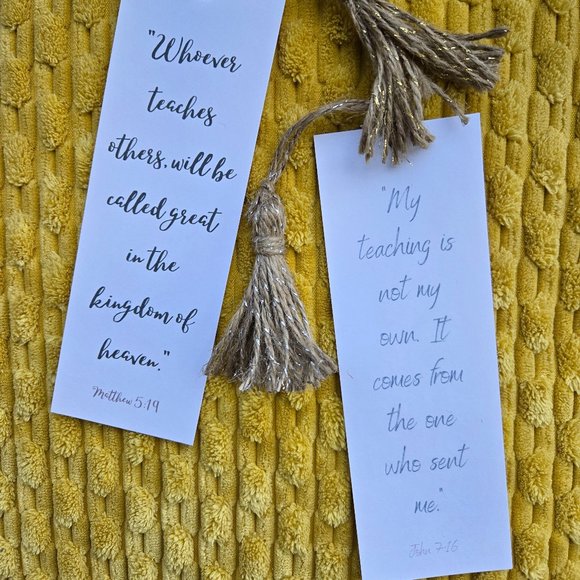 "Whoever
teaches
others, will be
called great
in the
kingdom of
heaven."
Matthew 5:19
"My
teaching is
not my
own. It
comes from
the one
who sent
me."
John 7:16